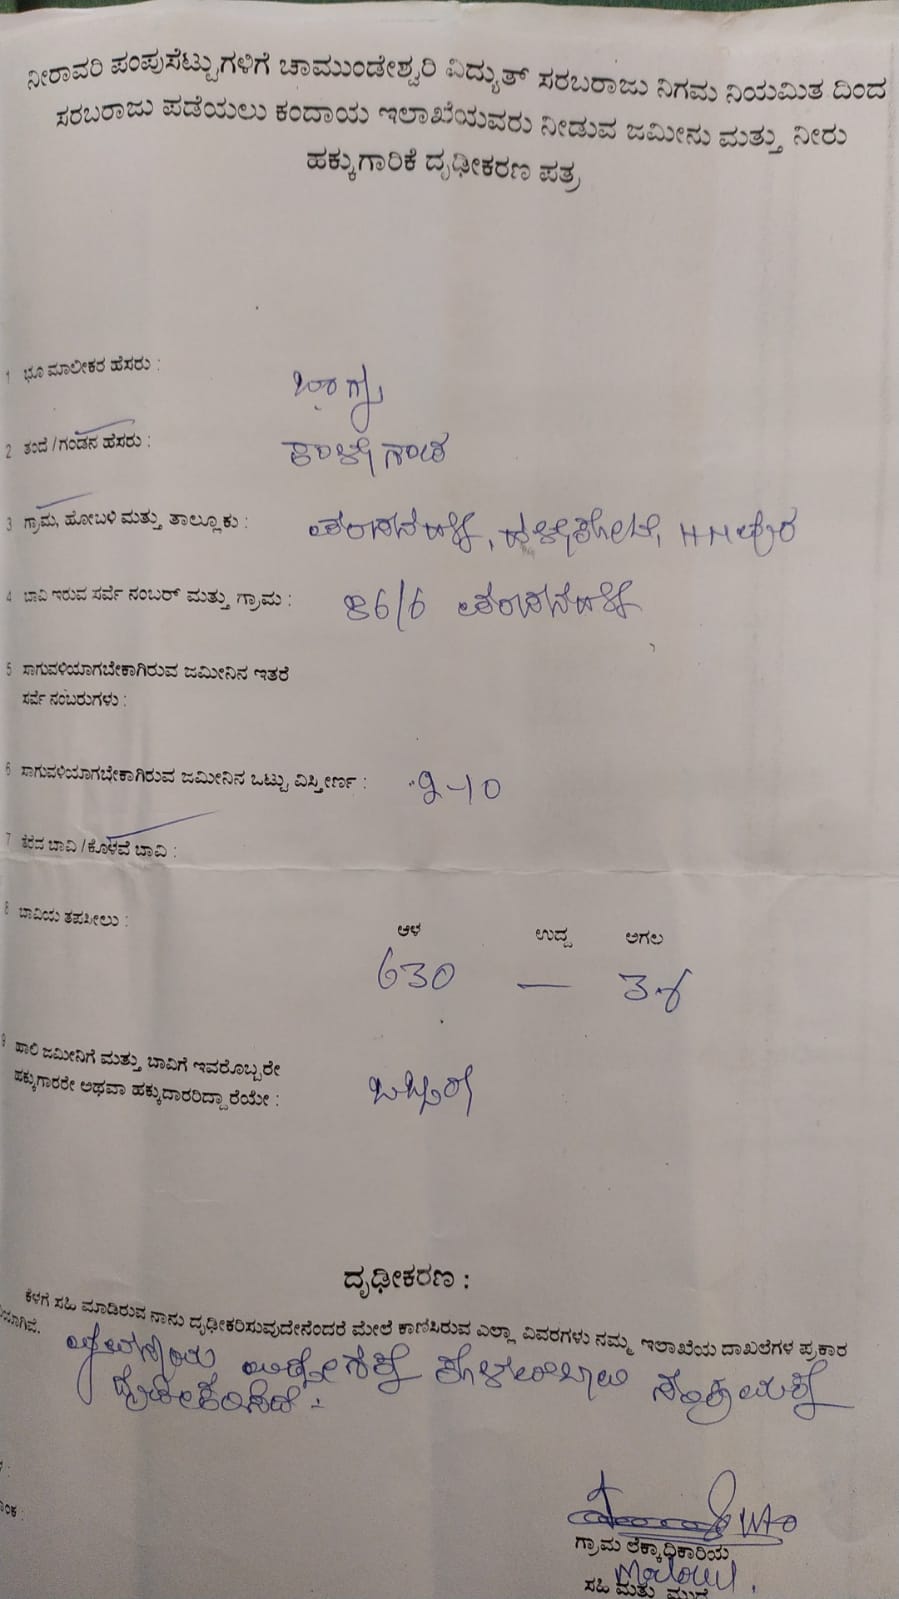 ನೀರಾವರಿ ಪಂಪುಸೆಟ್ಟುಗಳಿಗೆ ಚಾಮುಂಡೇಶ್ವರಿ ವಿದ್ಯುತ್ ಸರಬರಾಜು ನಿಗಮ ನಿಯಮಿತ ದಿಂದ
ಸರಬರಾಜು ಪಡೆಯಲು ಕಂದಾಯ ಇಲಾಖೆಯವರು ನೀಡುವ ಜಮೀನು ಮತ್ತು ನೀರು
ಹಕ್ಕುಗಾರಿಕೆ ದೃಢೀಕರಣ ಪತ್ರ
1 ಭೂ ಮಾಲೀಕರ ಹೆಸರು : ಭಾಗ್ಯ
2 ತಂದೆ / ಗಂಡನ ಹೆಸರು : ಕಾಳೇಗೌಡ
3 ಗ್ರಾಮ, ಹೋಬಳಿ ಮತ್ತು ತಾಲ್ಲೂಕು :
4 ಬಾವಿ ಇರುವ ಸರ್ವೆ ನಂಬರ್ ಮತ್ತು ಗ್ರಾಮ : 86/6
5 ಸಾಗುವಳಿಯಾಗಬೇಕಾಗಿರುವ ಜಮೀನಿನ ಇತರೆ
ಸರ್ವೆ ನಂಬರುಗಳು :
6 ಸಾಗುವಳಿಯಾಗಬೇಕಾಗಿರುವ ಜಮೀನಿನ ಒಟ್ಟು ವಿಸ್ತೀರ್ಣ : 2-10
7 ತೆರೆದ ಬಾವಿ / ಕೊಳವೆ ಬಾವಿ :
8 ಬಾವಿಯ ತಪಸೀಲು : ಆಳ ಉದ್ದ ಅಗಲ
630 —
9 ಹಾಲಿ ಜಮೀನಿಗೆ ಮತ್ತು ಬಾವಿಗೆ ಇವರೊಬ್ಬರೇ
ಹಕ್ಕುಗಾರರೇ ಅಥವಾ ಹಕ್ಕುದಾರರಿದ್ದಾರೆಯೇ : ಒಬ್ಬರೇ
ದೃಢೀಕರಣ :
ಕೆಳಗೆ ಸಹಿ ಮಾಡಿರುವ ನಾನು ದೃಢೀಕರಿಸುವುದೇನೆಂದರೆ ಮೇಲೆ ಕಾಣಿಸಿರುವ ಎಲ್ಲಾ ವಿವರಗಳು ನಮ್ಮ ಇಲಾಖೆಯ ದಾಖಲೆಗಳ ಪ್ರಕಾರ
ದೃಢೀಕರಿಸಿದೆ.
ಗ್ರಾಮ ಲೆಕ್ಕಾಧಿಕಾರಿಯ
ಸಹಿ ಮತ್ತು